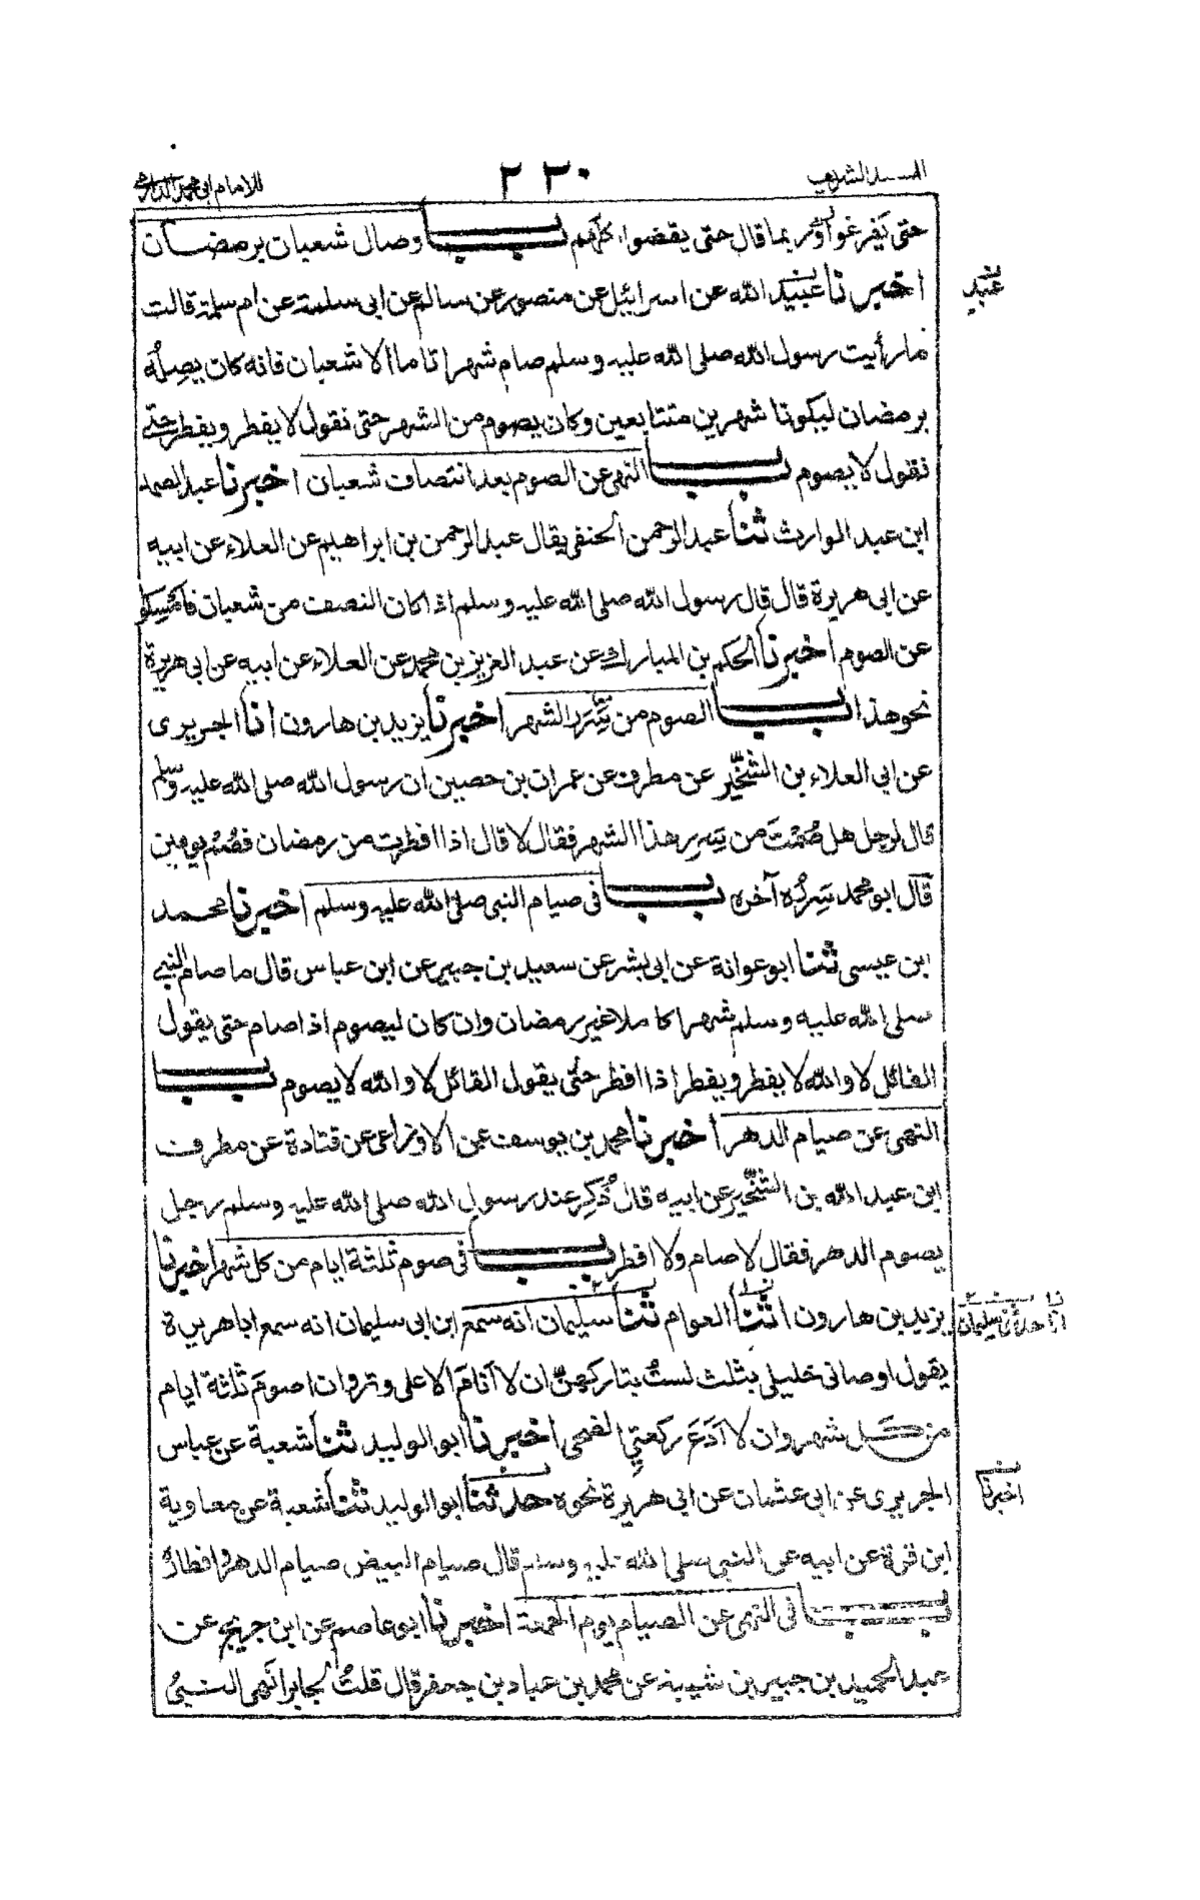 المسند الشريف
٢٣٠
للامام ابى محمد الدارمى
حتى يَفرغوا وربما قال حتى يقضوا اكلهم باب وصال شعبان برمضان
اخبرنا عبيد الله عن اسرائيل عن منصور عن سالم عن ابى سلمة عن ام سلمة قالت
ما رأيت رسول الله صلى الله عليه وسلم صام شهرا تاما الا شعبان فانه كان يصِلُه
برمضان ليكونا شهرين متتابعين وكان يصوم من الشهر حتى نقول لا يفطر ويفطر حتى
نقول لا يصوم باب النهى عن الصوم بعد انتصاف شعبان اخبرنا عبد الصمد
ابن عبد الوارث ثنا عبد الرحمن الحنفى يقال عبد الرحمن بن ابراهيم عن العلاء عن ابيه
عن ابى هريرة قال قال رسول الله صلى الله عليه وسلم اذا كان النصف من شعبان فامسكوا
عن الصوم اخبرنا الحكم بن المبارك عن عبد العزيز بن محمد عن العلاء عن ابيه عن ابى هريرة
نحو هذا باب الصوم من سَرَر الشهر اخبرنا يزيد بن هارون انا الجريرى
عن ابى العلاء بن الشخّير عن مطرف عن عمران بن حصين ان رسول الله صلى الله عليه وسلم
قال لرجل هل صُمْتَ من سِرر هذا الشهر فقال لا قال اذا افطرت من رمضان فصُم يومين
قال ابو محمد سَرَرُه آخره باب فى صيام النبى صلى الله عليه وسلم اخبرنا محمد
ابن عيسى ثنا ابو عوانة عن ابى بشر عن سعيد بن جبير عن ابن عباس قال ما صام النبى
صلى الله عليه وسلم شهرا كاملا غير رمضان وان كان ليصوم اذا صام حتى يقول
القائل لا والله لا يفطر ويفطر اذا افطر حتى يقول القائل لا والله لا يصوم باب
النهى عن صيام الدهر اخبرنا محمد بن يوسف عن الاوزاعى عن قتادة عن مطرف
ابن عبد الله بن الشخّير عن ابيه قال ذُكِر عند رسول الله صلى الله عليه وسلم رجل
يصوم الدهر فقال لا صام ولا افطر باب فى صوم ثلثة ايام من كل شهر اخبرنا
يزيد بن هارون انا العوام ثنا سليمان انه سمع ابن ابى سليمان انه سمع ابا هريرة
يقول اوصانى خليلى بثلث لستُ بتاركهنّ ان لا انامَ الا على وتر وان اصومَ ثلثة ايام
من كل شهر وان لا ادَعَ ركعتىِ الضحى اخبرنا ابو الوليد ثنا شعبة عن عباس
الجريرى عن ابى عثمان عن ابى هريرة نحوه حدثنا ابو الوليد ثنا شعبة عن معاوية
ابن قرة عن ابيه عن النبى صلى الله عليه وسلم قال صيام البيض صيام الدهر وافطاره
باب فى النهى عن الصيام يوم الجمعة اخبرنا ابو عاصم عن ابن جريج عن
عبد الحميد بن جبير بن شيبة عن محمد بن عباد بن جعفر قال قلتُ لجابر انَهى النبىُّ
عبيد
انا حدثنى سليمان
اخبرنا